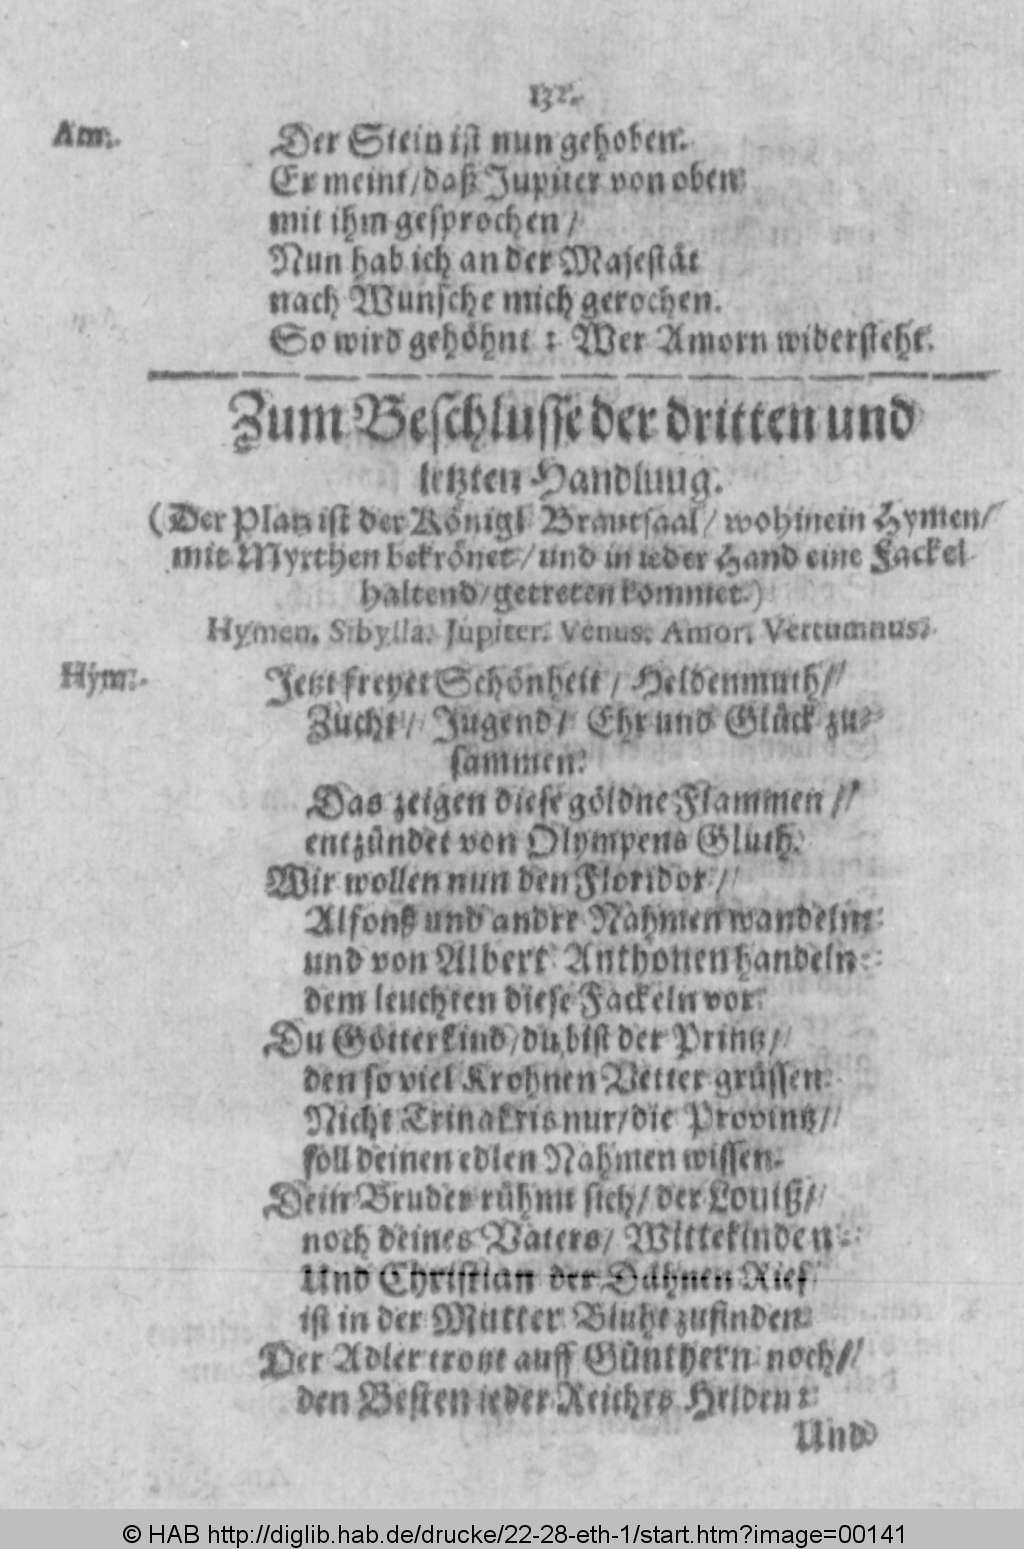 132.
Am. Der Stein ist nun gehoben.
Er meint/ daß Jupiter von oben
mit ihm gesprochen/
Nun hab ich an der Majestät
nach Wunsche mich gerochen.
So wird gehöhnt: Wer Amorn widersteht.
Zum Beschlusse der dritten und
letzten Handlung.
(Der Platz ist der Königl Brautsaal/ wohinein Hymen/
mit Myrthen bekrönet/ und in ieder Hand eine Fackel
haltend/ getreten kommet.)
Hymen. Sibylla. Jupiter. Venus. Amor. Vertumnus.
Hym. Jetzt freyet Schönheit/ Heldenmuth/
Zucht/ Jugend/ Ehr und Glück zu-
sammen.
Das zeigen diese göldne Flammen/
entzündet von Olympens Gluth.
Wir wollen nun den Floridor/
Alfonß und andre Nahmen wandeln:
und von Albert Anthonen handeln:
dem leuchten diese Fackeln vor.
Du Götterkind/ du bist der Printz/
den so viel Krohnen Vetter grüssen.
Nicht Trinakris nur/ die Provintz/
soll deinen edlen Nahmen wissen.
Dein Bruder rühmt sich/ der Louiß/
noch deines Vaters/ Wittekinden:
Und Christian der Dähnen Rieß
ist in der Mutter Bluht zufinden.
Der Adler trotzt auff Günthern noch/
den Besten ieder Reiches Helden:
Und
© HAB http://diglib.hab.de/drucke/22-28-eth-1/start.htm?image=00141